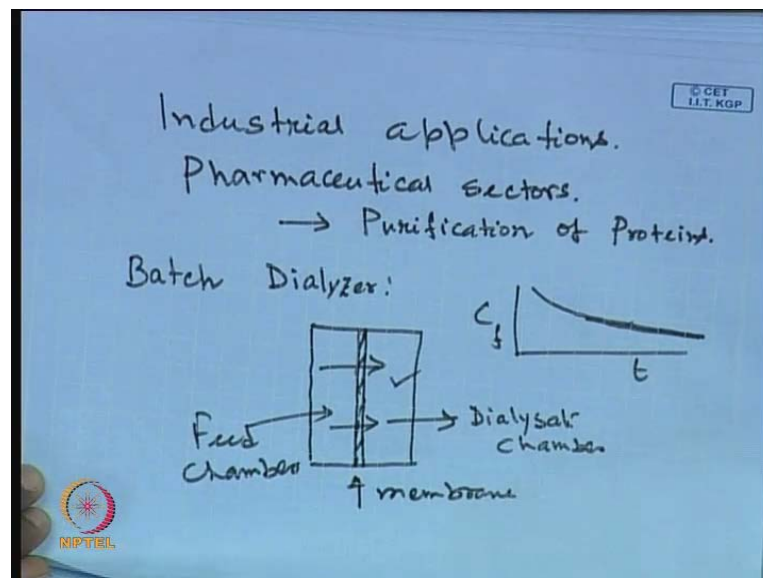 © CET
I.I.T. KGP
Industrial applications.
Pharmaceutical sectors.
→ Purification of Proteins.
Batch Dialyzer:
C_f
t
Feed
chamber
Dialysate
chamber
↑ membrane
NPTEL